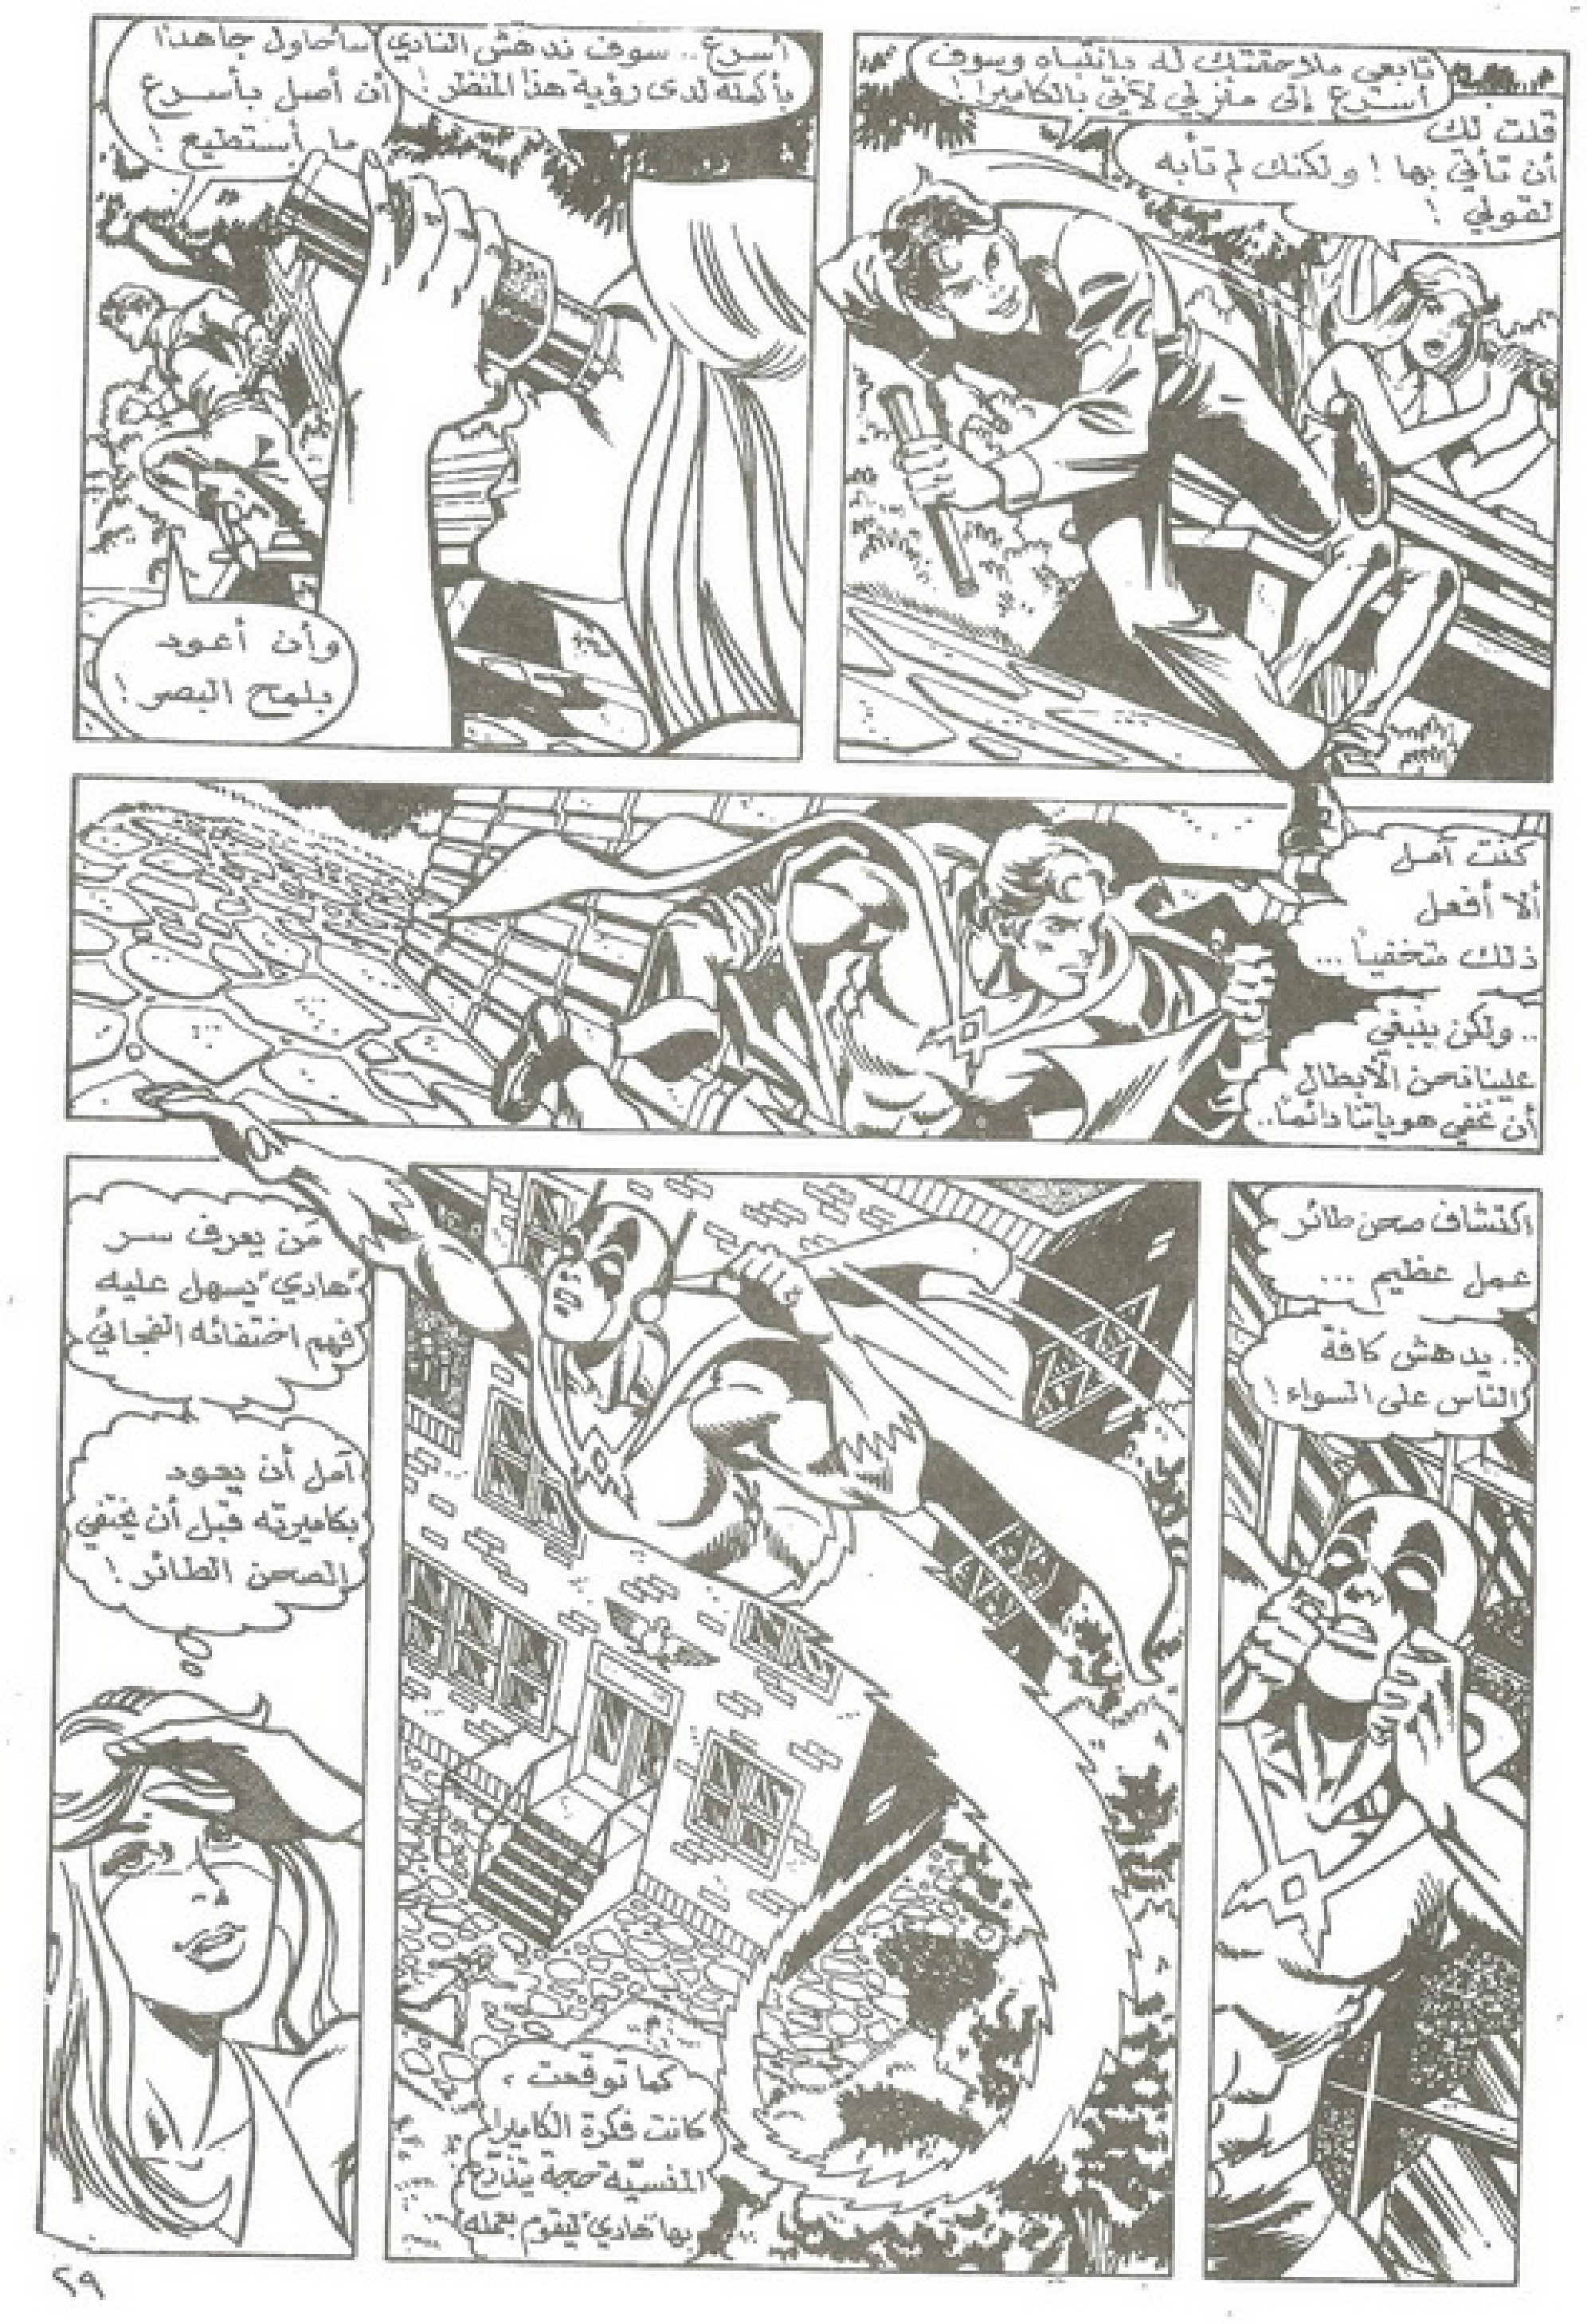 تابعي ملاحقتك له بانتباه وسوف
أسرع إلى منزلي لآتي بالكاميرا!
قلت لك
أن تأتي بها! ولكنك لم تأبه
لقولي!
أسرع.. سوف ندهش النادي
بأكمله لدى رؤية هذا المنظر!
سأحاول جاهدًا
أن أصل بأسرع
ما أستطيع!
وأن أعود
بلمح البصر!
كنت آمل
ألا أفعل
ذلك متخفياً...
.. ولكن ينبغي
علينا نحن الأبطال
أن نخفي هوياتنا دائماً..
اكتشاف صحن طائر
عمل عظيم...
.. يدهش كافة
الناس على السواء!
كما توقعت،
كانت فكرة الكاميرا
المنسيّة حجة يتذرّع
بها "هادي" ليقوم بعمله
مَن يعرف سر
"هادي" يسهل عليه
فهم اختفائه الفجائي
آمل أن يعود
بكاميرته قبل أن يختفي
الصحن الطائر!
٢٩